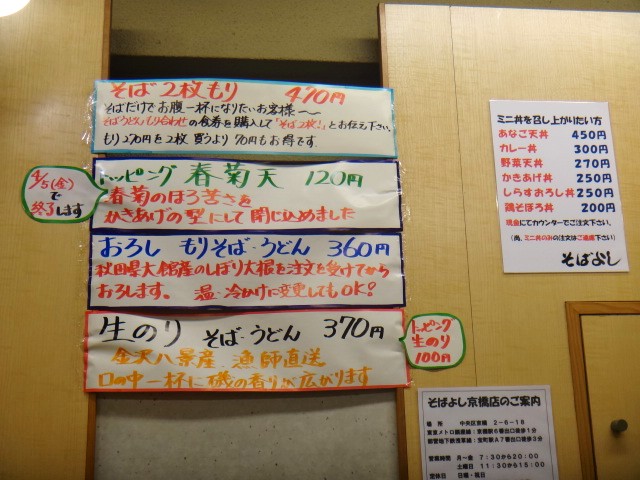 そば2枚もり 470円
そばだけでお腹一杯になりたいお客様〜
そば・うどんもり合わせの食券を購入して「そば2枚!」とお伝え下さい。
もり270円を2枚買うより70円もお得です。
トッピング 春菊天 120円
春菊のほろ苦さを
かきあげの型にして閉じ込めました
4/5(金)
で
終了します
おろし もりそば・うどん 360円
秋田県大館産のしぼり大根を注文を受けてから
おろします。 温・冷かけに変更してもOK!
生のり そば・うどん 370円
金沢八景産 漁師直送
口の中一杯に磯の香りが広がります
トッピング
生のり
100円
ミニ丼を召し上がりたい方
あなご天丼 450円
カレー丼 300円
野菜天丼 270円
かきあげ丼 250円
しらすおろし丼 250円
鶏そぼろ丼 200円
現金にてカウンターでご注文下さい。
(尚、ミニ丼のみの注文はご遠慮下さい)
そばよし
そばよし京橋店のご案内
場所 中央区京橋 2-6-18
東京メトロ銀座線:京橋駅6番出口徒歩1分
都営地下鉄浅草線:宝町駅A7番出口徒歩3分
営業時間 月-金 7:30から20:00
土曜日 11:30から15:00
定休日 日曜・祝日